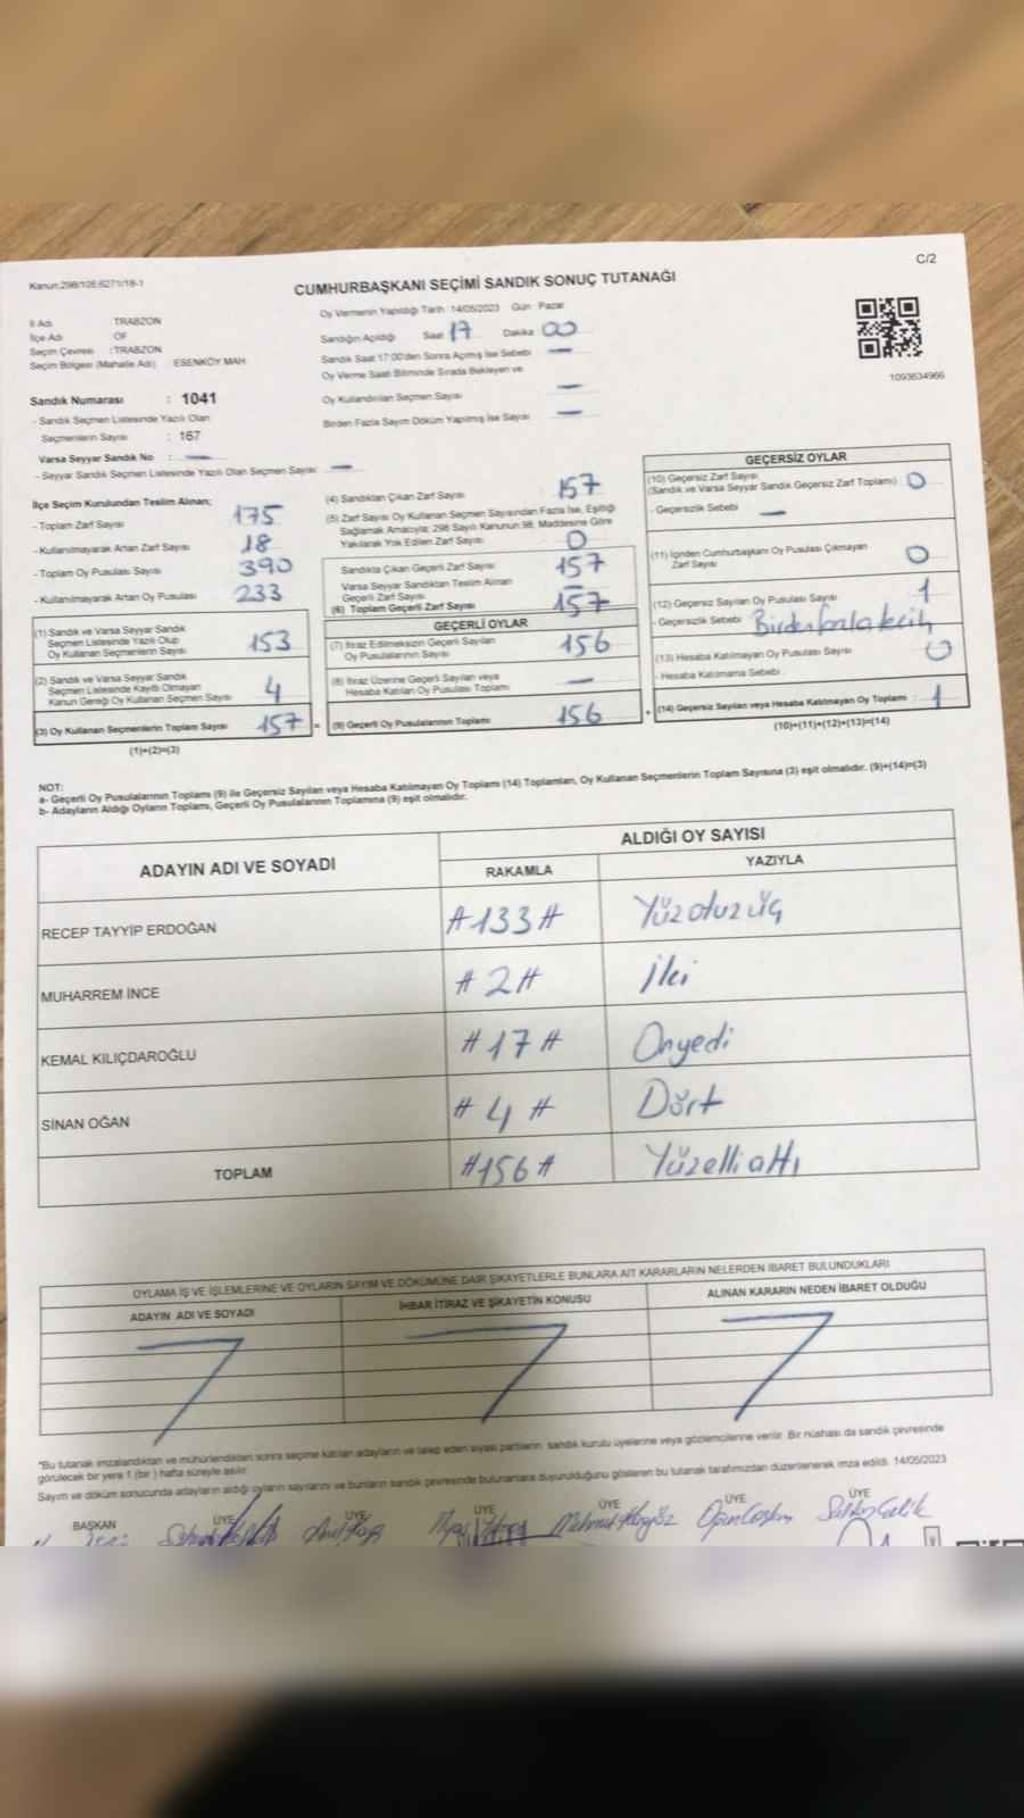 C/2
Kanun:298/105,6271/18-1
CUMHURBAŞKANI SEÇİMİ SANDIK SONUÇ TUTANAĞI
İl Adı TRABZON
İlçe Adı OF
Seçim Çevresi :TRABZON
Seçim Bölgesi (Mahalle Adı) ESENKÖY MAH
Oy Vermenin Yapıldığı Tarih 14/05/2023 Gün Pazar
Sandığın Açıldığı Saat 17 Dakika 00
Sandık Saat 17:00'den Sonra Açılmış İse Sebebi —
Oy Verme Saati Bitiminde Sırada Bekleyen ve
Oy Kullandırılan Seçmen Sayısı —
Birden Fazla Sayım Döküm Yapılmış İse Sayısı —
1093634966
Sandık Numarası : 1041
- Sandık Seçmen Listesinde Yazılı Olan
Seçmenlerin Sayısı : 167
Varsa Seyyar Sandık No : —
- Seyyar Sandık Seçmen Listesinde Yazılı Olan Seçmen Sayısı —
İlçe Seçim Kurulundan Teslim Alınan;
- Toplam Zarf Sayısı 175
- Kullanılmayarak Artan Zarf Sayısı 18
- Toplam Oy Pusulası Sayısı 390
- Kullanılmayarak Artan Oy Pusulası 233
(1) Sandık ve Varsa Seyyar Sandık
Seçmen Listesinde Yazılı Olup
Oy Kullanan Seçmenlerin Sayısı 153
(2) Sandık ve Varsa Seyyar Sandık
Seçmen Listesinde Kayıtlı Olmayan
Kanun Gereği Oy Kullanan Seçmen Sayısı 4
(3) Oy Kullanan Seçmenlerin Toplam Sayısı 157
(1)+(2)=(3)
(4) Sandıktan Çıkan Zarf Sayısı 157
(5) Zarf Sayısı Oy Kullanan Seçmen Sayısından Fazla İse, Eşitliği
Sağlamak Amacıyla; 298 Sayılı Kanunun 98. Maddesine Göre
Yakılarak Yok Edilen Zarf Sayısı 0
Sandıkta Çıkan Geçerli Zarf Sayısı 157
Varsa Seyyar Sandıktan Teslim Alınan
Geçerli Zarf Sayısı —
(6) Toplam Geçerli Zarf Sayısı 157
GEÇERLİ OYLAR
(7) İtiraz Edilmeksizin Geçerli Sayılan
Oy Pusulalarının Sayısı 156
(8) İtiraz Üzerine Geçerli Sayılan veya
Hesaba Katılan Oy Pusulası Toplamı —
= (9) Geçerli Oy Pusulalarının Toplamı 156
GEÇERSİZ OYLAR
(10) Geçersiz Zarf Sayısı
(Sandık ve Varsa Seyyar Sandık Geçersiz Zarf Toplamı) 0
- Geçersizlik Sebebi —
(11) İçinden Cumhurbaşkanı Oy Pusulası Çıkmayan
Zarf Sayısı 0
(12) Geçersiz Sayılan Oy Pusulası Sayısı 1
- Geçersizlik Sebebi Birden fazla tercih
(13) Hesaba Katılmayan Oy Pusulası Sayısı 0
- Hesaba Katılmama Sebebi
+ (14) Geçersiz Sayılan veya Hesaba Katılmayan Oy Toplamı : 1
(10)+(11)+(12)+(13)=(14)
NOT:
a- Geçerli Oy Pusulalarının Toplamı (9) ile Geçersiz Sayılan veya Hesaba Katılmayan Oy Toplamı (14) Toplamları, Oy Kullanan Seçmenlerin Toplam Sayısına (3) eşit olmalıdır. (9)+(14)=(3)
b- Adayların Aldığı Oyların Toplamı, Geçerli Oy Pusulalarının Toplamına (9) eşit olmalıdır.
ADAYIN ADI VE SOYADI ALDIĞI OY SAYISI
RAKAMLA YAZIYLA
RECEP TAYYİP ERDOĞAN #133# Yüzotuzüç
MUHARREM İNCE #2# İki
KEMAL KILIÇDAROĞLU #17# Onyedi
SİNAN OĞAN #4# Dört
TOPLAM #156# Yüzelliattı
OYLAMA İŞ VE İŞLEMLERİNE VE OYLARIN SAYIM VE DÖKÜMÜNE DAİR ŞİKAYETLERLE BUNLARA AİT KARARLARIN NELERDEN İBARET BULUNDUKLARI
ADAYIN ADI VE SOYADI İHBAR İTİRAZ VE ŞİKAYETİN KONUSU ALINAN KARARIN NEDEN İBARET OLDUĞU
"Bu tutanak imzalandıktan ve mühürlendikten sonra seçime katılan adayların ve talep eden siyasi partilerin sandık kurulu üyelerine veya gözlemcilerine verilir. Bir nüshası da sandık çevresinde
görülecek bir yere 1 (bir) hafta süreyle asılır.
Sayım ve döküm sonucunda adayların aldığı oyların sayılarını ve bunların sandık çevresinde bulunanlara duyurulduğunu gösteren bu tutanak tarafımızdan düzenlenerek imza edildi. 14/05/2023
BAŞKAN ÜYE ÜYE ÜYE ÜYE ÜYE ÜYE